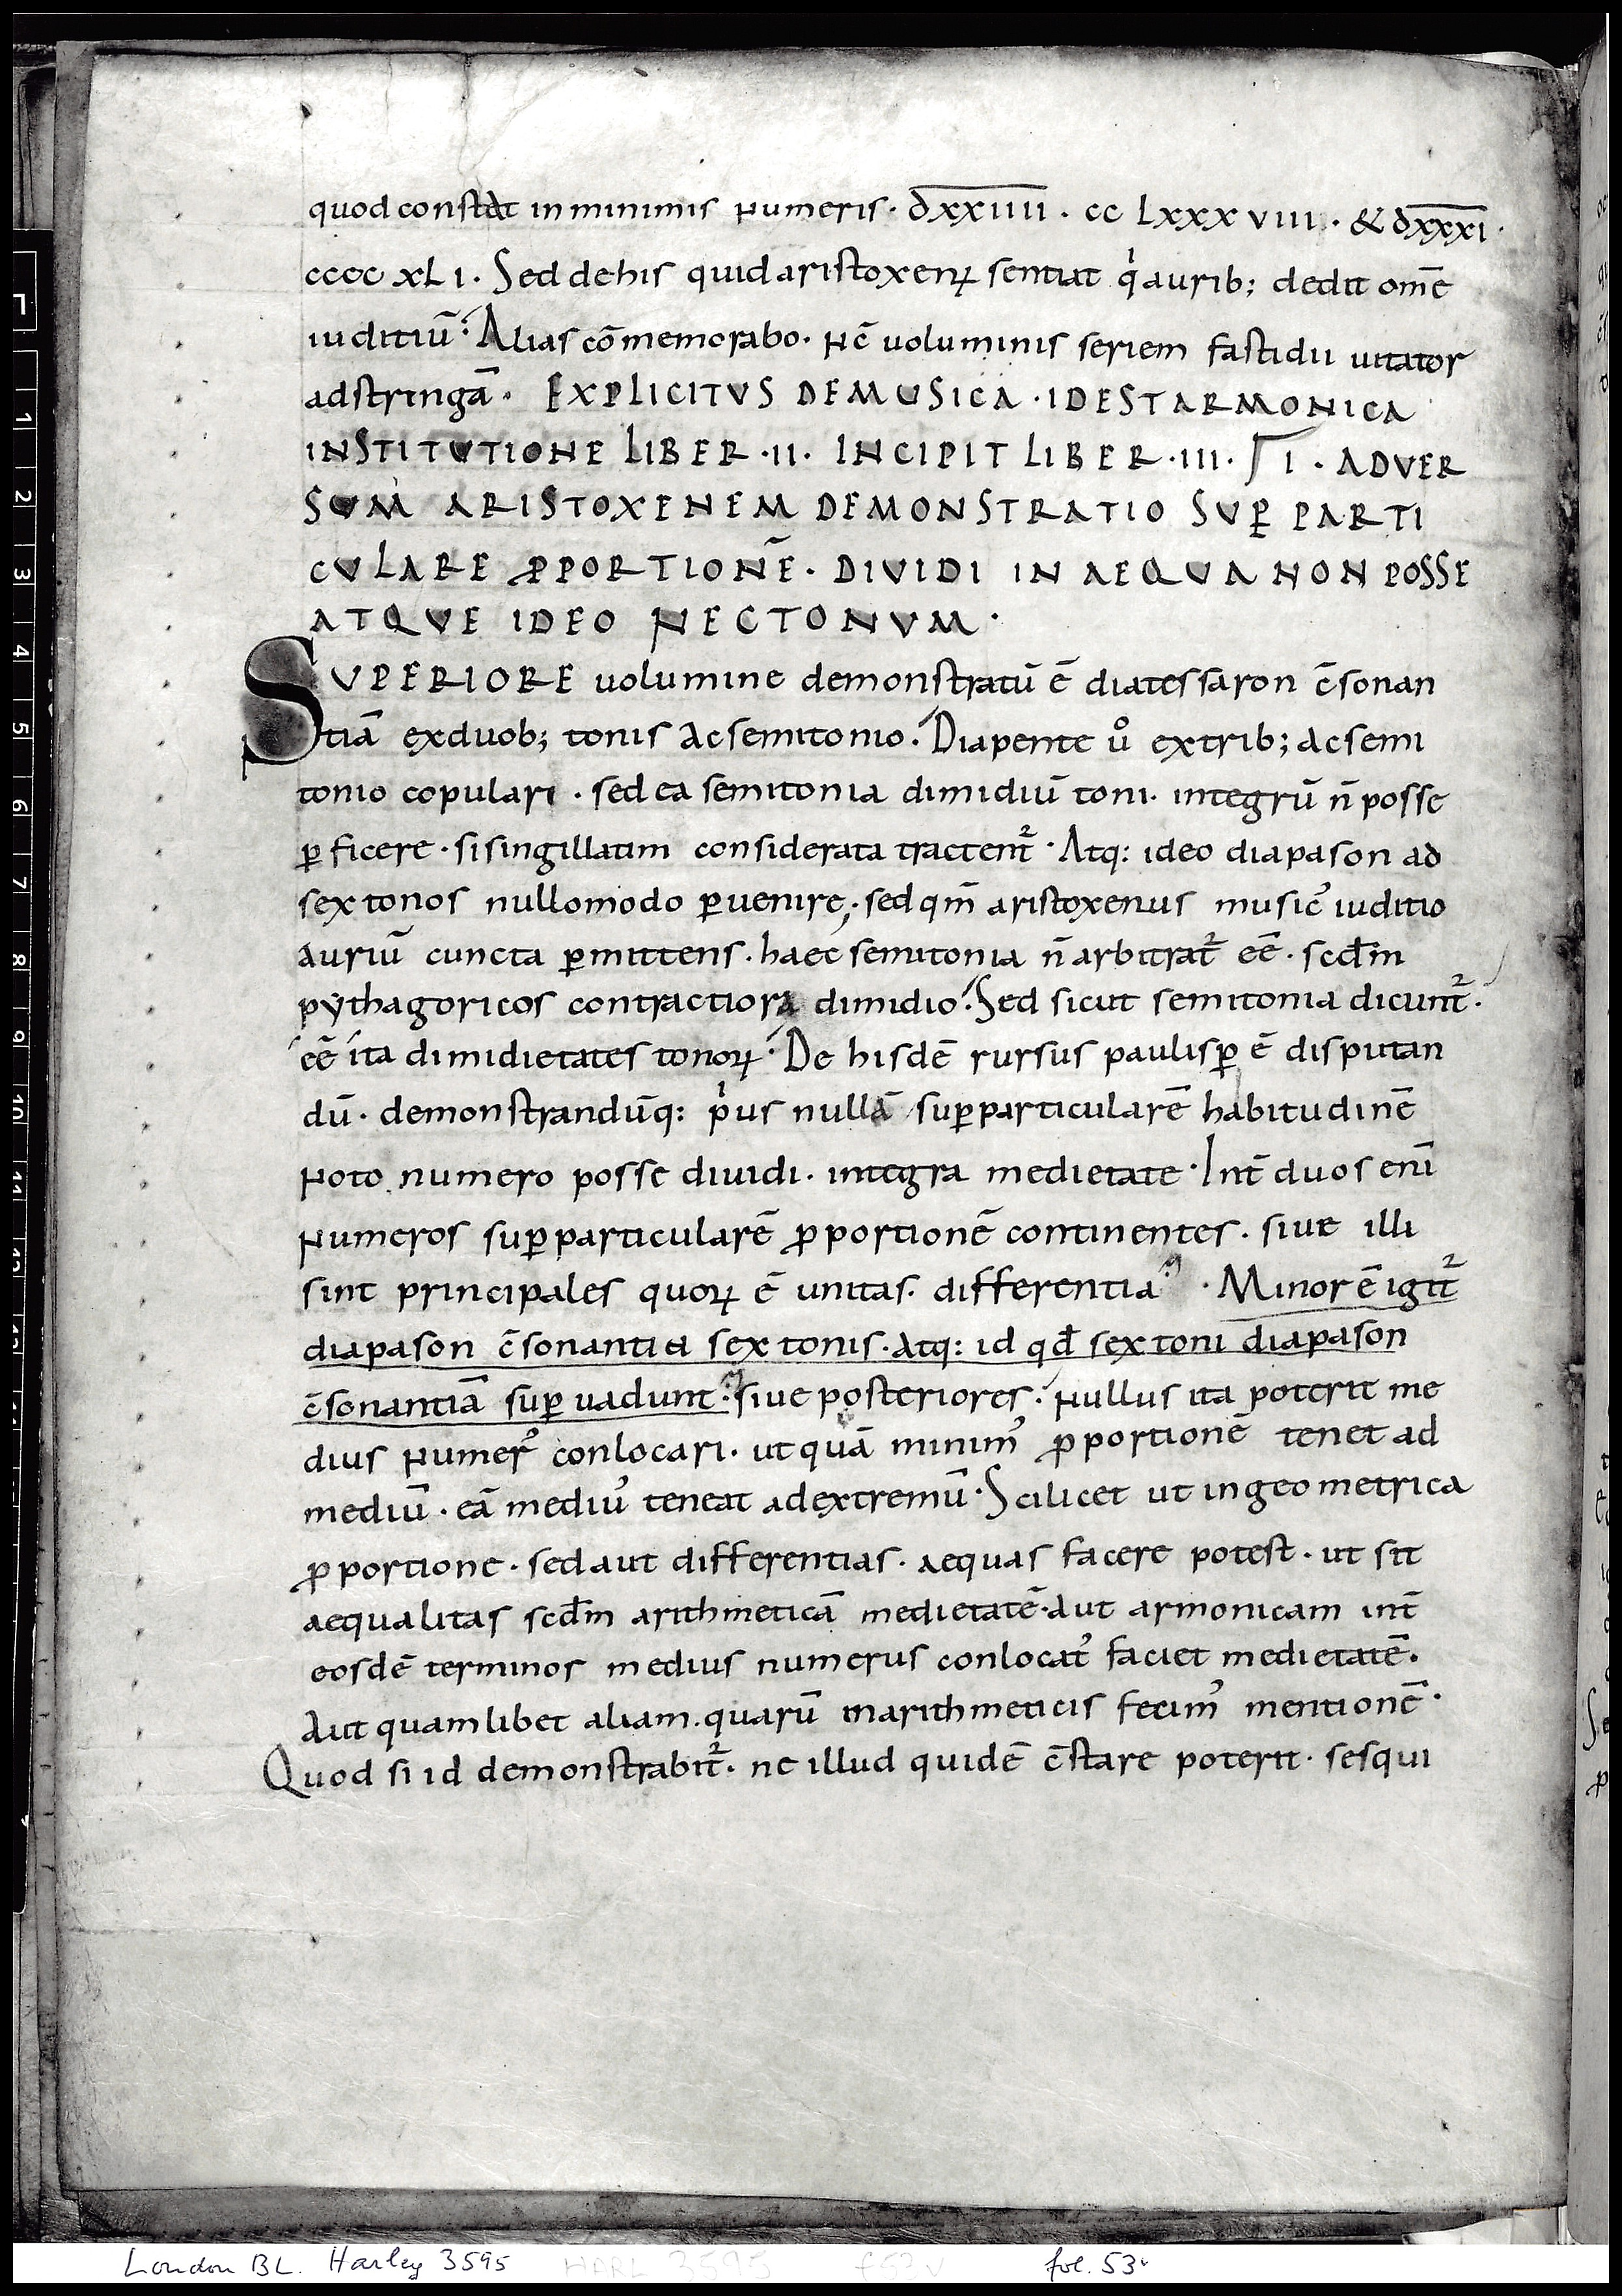 quod constat in minimis numeris · d̅x̅x̅i̅i̅i̅i̅ · cc Lxxxviii · & d̅x̅x̅x̅i̅ ·
cccc xLi · Sed de his quid aristoxenꝝ sentiat qͥ aurib; dedit om̄e
iuditiū· Alias cōmemorabo · nc̄ uoluminis seriem fastidii uitator
adstringā · EXPLICITVS DE MUSICA · IDEST ARMONICA
INSTITUTIONE LIBER · II · INCIPIT LIBER · III · I · ADVER
SUM ARISTOXENEM DEMONSTRATIO SUꝑ PARTI
CULARE ꝓPORTIONĒ · DIVIDI IN AEQUA NON POSSE
ATQUE IDEO NEC TONUM ·
SVPERIORE uolumine demonstratū ē diatessaron c̄sonan
tiā ex duob; tonis ac semitonio · Diapente uº ex trib; ac semi
tonio copulari · sed ea semitonia dimidiū toni · integrū n̄ posse
ꝑficere · si singillatim considerata tractent᷑ · Atq: ideo diapason ad
sex tonos nullo modo ꝑuenire · sed qm̄ aristoxenus musicʼ iuditio
auriū cuncta ꝑmittens · haec semitonia n̄ arbitrat᷑ eē · scd̄m
pẏthagoricos contractiora dimidio · Sed sicut semitonia dicunt᷑ ·
eē ita dimidietates tonoꝝ · De hisdē rursus paulisꝑ ē disputan
dū · demonstrandūq: pͥus nullā suꝑparticularē habitudinē
noto numero posse diuidi · integra medietate · Int̄ duos enī
numeros suꝑparticularē ꝓportionē continentes · siue illi
sint principales quoꝝ ē unitas · differentia · Minor ē igit᷑
diapason c̄sonantia sex tonis · Atq: id qd̄ sex toni diapason
c̄sonantiā suꝑuadunt · siue posteriores · nullus ita poterit me
dius numerʼ conlocari · ut quā minimʼ ꝓportionē tenet ad
mediū · eā mediuʼ teneat ad extremū · Scilicet ut in geometrica
ꝓportione · sed aut differentias · aequas facere potest · ut sit
aequalitas scd̄m arithmeticā medietatē · Aut armonicam int̄
eosdē terminos medius numerus conlocatʼ faciet medietatē ·
Aut quamlibet aliam · quarū in arithmeticis fecimʼ mentionē ·
Quod si id demonstrabit᷑ · ne illud quidē c̄stare poterit · sesqui
London BL. Harley 3595 HARL 3595 f53v fol. 53v